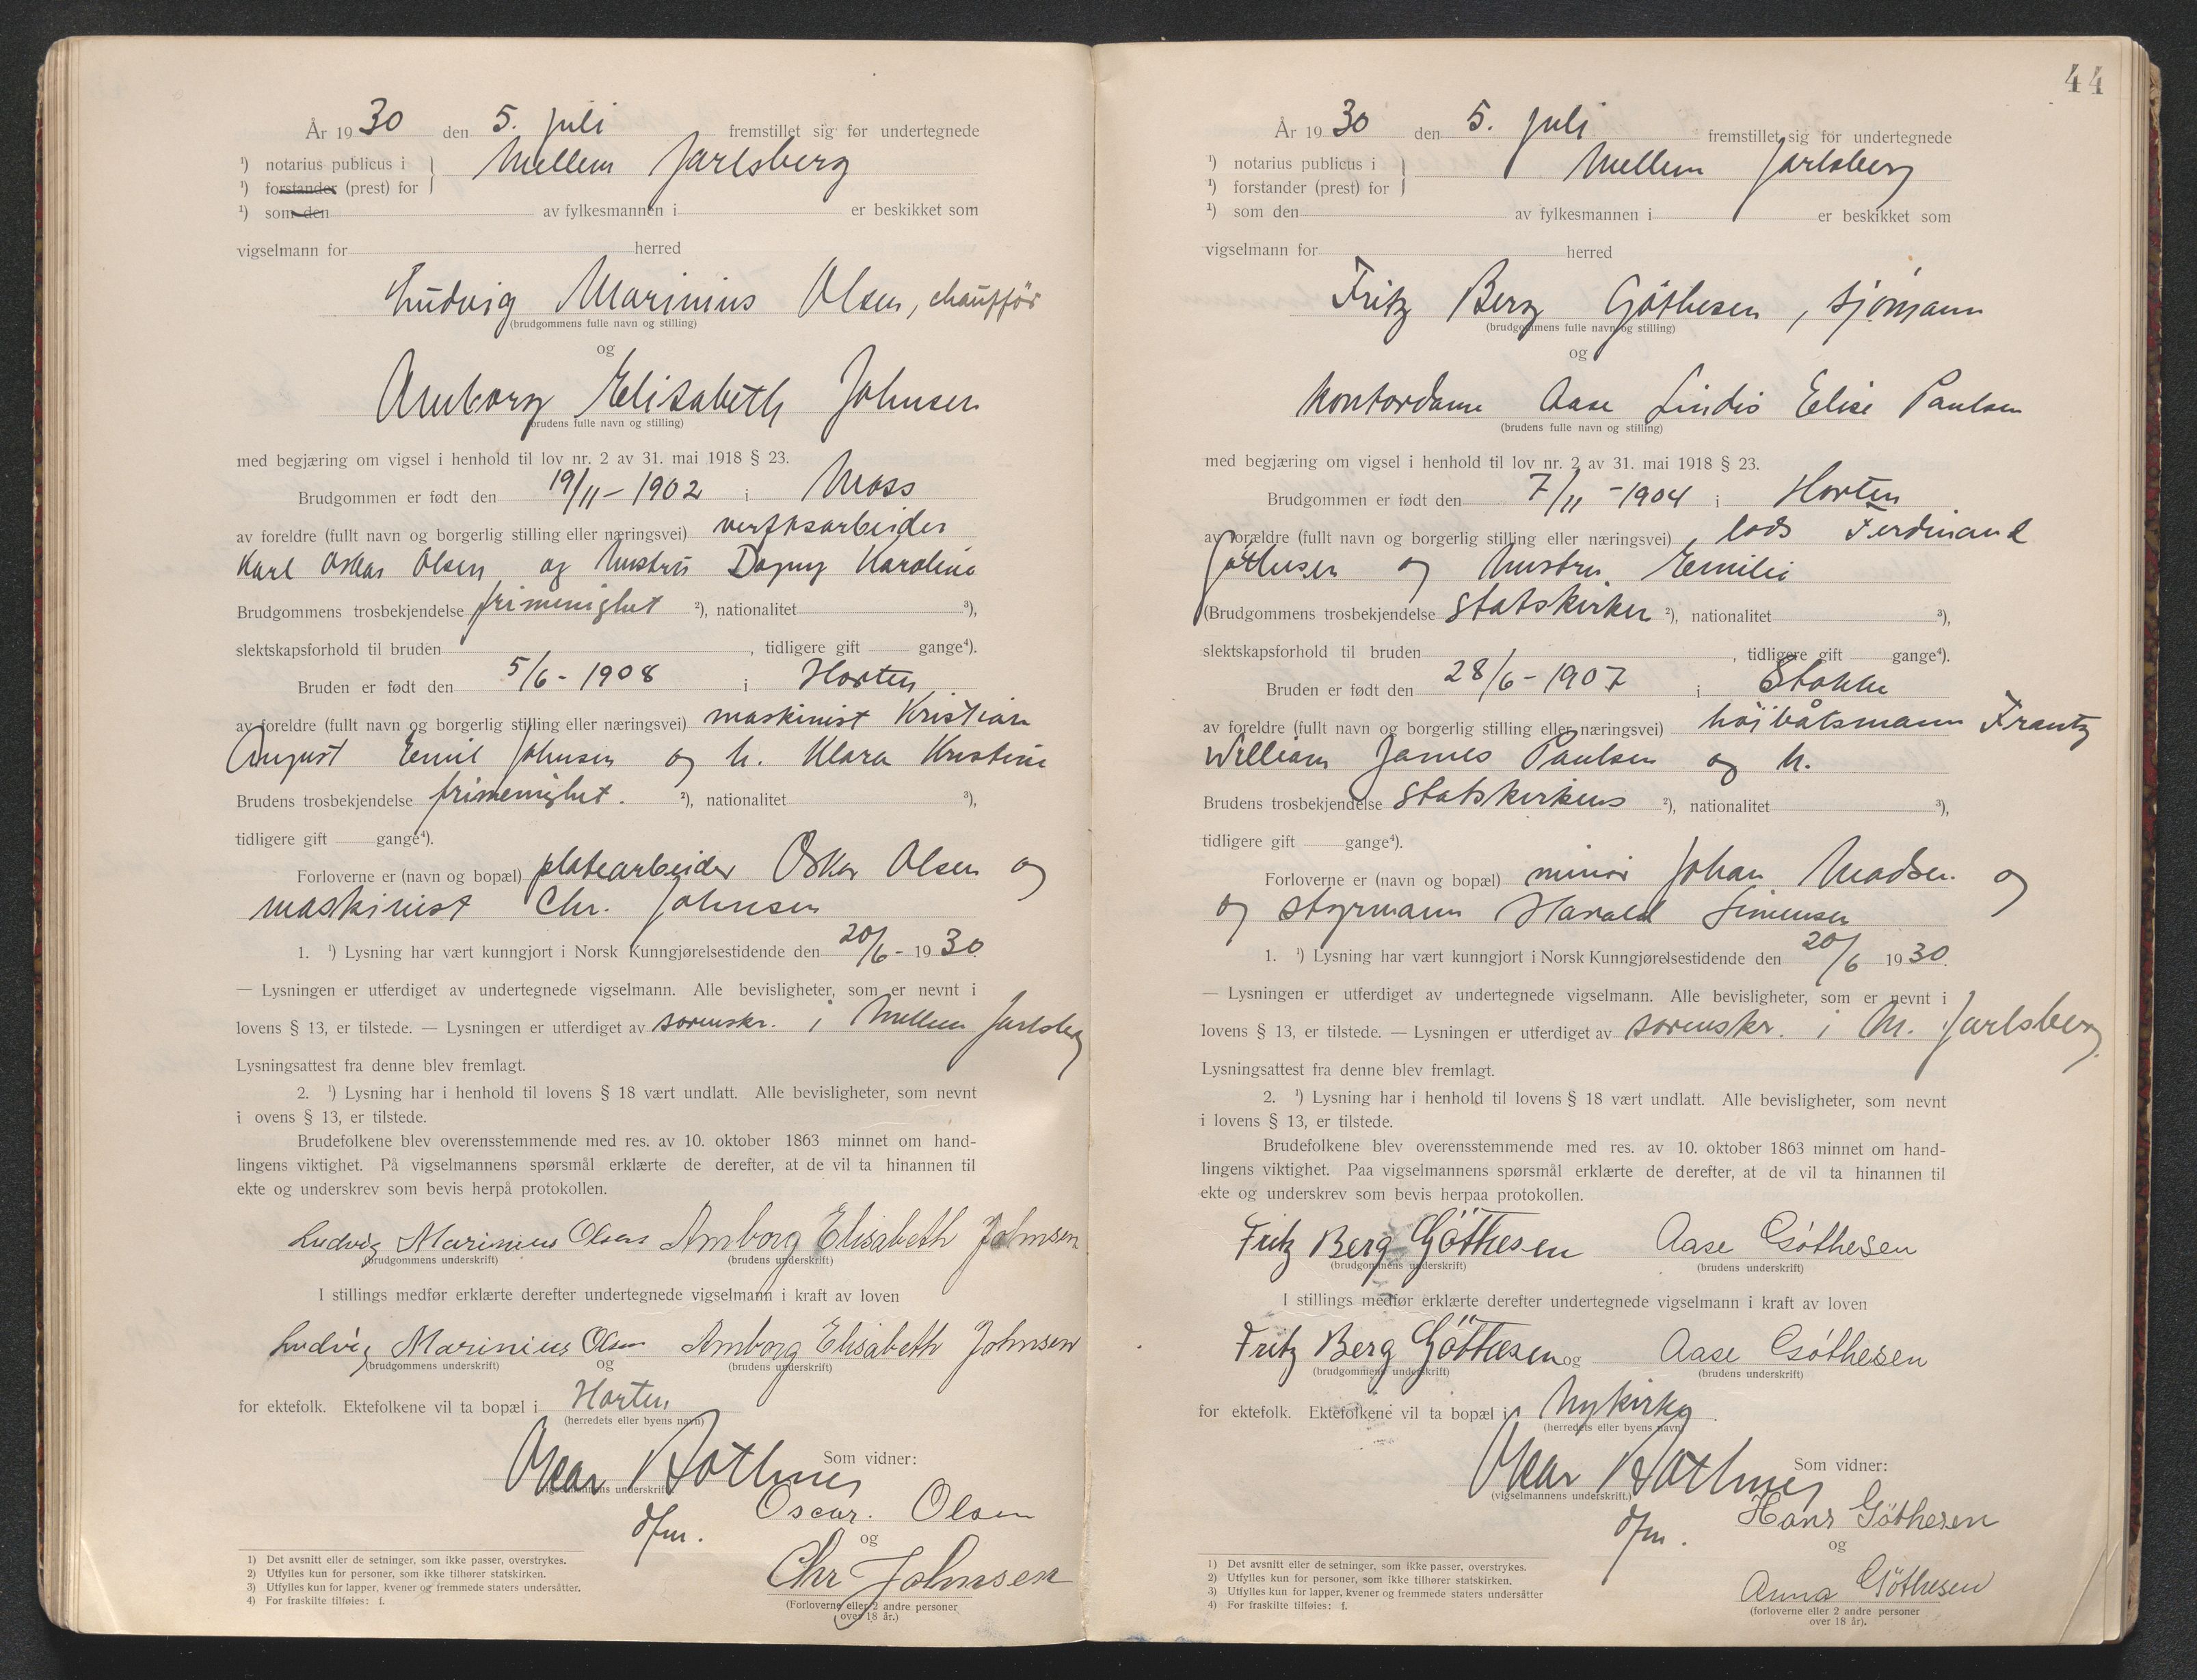 År 1930 den 5. juli fremstillet sig for undertegnede
¹) notarius publicus i } Mellem Jarlsberg
¹) forstander (prest) for
¹) som den av fylkesmannen i er beskikket som
vigselmann for herred
Ludvig Marinius Olsen, chauffør
(brudgommens fulle navn og stilling)
og
Amborg Elisabeth Johnsen
(brudens fulle navn og stilling)
med begjæring om vigsel i henhold til lov nr. 2 av 31. mai 1918 § 23.
Brudgommen er født den 19/11-1902 i Moss
av foreldre (fullt navn og borgerlig stilling eller næringsvei) verftsarbeider
Karl Oskar Olsen og hustru Dagny Karoline
Brudgommens trosbekjendelse frimenighet ²), nationalitet ³),
slektskapsforhold til bruden , tidligere gift gange⁴).
Bruden er født den 5/6-1908 i Horten
av foreldre (fullt navn og borgerlig stilling eller næringsvei) maskinist Kristian
August Emil Johnsen og h. Klara Kristine
Brudens trosbekjendelse frimenighet. ²), nationalitet ³),
tidligere gift gange⁴).
Forloverne er (navn og bopæl) platearbeider Oskar Olsen og
maskinist Chr. Johnsen
1. ¹) Lysning har vært kunngjort i Norsk Kunngjørelsestidende den 20/6-1930.
— Lysningen er utferdiget av undertegnede vigselmann. Alle bevisligheter, som er nevnt i
lovens § 13, er tilstede. — Lysningen er utferdiget av sorenskr. i Mellem Jarlsberg
Lysningsattest fra denne blev fremlagt.
2. ¹) Lysning har i henhold til lovens § 18 vært undlatt. Alle bevisligheter, som nevnt
i ovens § 13, er tilstede.
Brudefolkene blev overensstemmende med res. av 10. oktober 1863 minnet om hand-
lingens viktighet. På vigselmannens spørsmål erklærte de derefter, at de vil ta hinannen til
ekte og underskrev som bevis herpå protokollen.
Ludvig Marinius Olsen Amborg Elisabeth Johnsen
(brudgommens underskrift) (brudens underskrift)
I stillings medfør erklærte derefter undertegnede vigselmann i kraft av loven
Ludvig Marinius Olsen Amborg Elisabeth Johnsen
(brudgommens underskrift) og (brudens underskrift)
for ektefolk. Ektefolkene vil ta bopæl i Horten
(herredets eller byens navn)
Som vidner:
Oskar Rothnes
(vigselmannens underskrift)
dfm.
Oscar. Olsen
og
Chr Johnsen
(Forloverne eller 2 andre personer
over 18 år.)
1) Det avsnitt eller de setninger, som ikke passer, overstrykes.
2) Utfylles kun for personer, som ikke tilhører statskirken.
3) Utfylles kun for lapper, kvener og fremmede staters undersåtter.
4) For fraskilte tilføies: f.
44
År 1930 den 5. juli fremstillet sig for undertegnede
¹) notarius publicus i } Mellem Jarlsberg
¹) forstander (prest) for
¹) som den av fylkesmannen i er beskikket som
vigselmann for herred
Fritz Berg Göthesen, sjömann
(brudgommens fulle navn og stilling)
og
kontordame Aase Lindis Elise Paulsen
(brudens fulle navn og stilling)
med begjæring om vigsel i henhold til lov nr. 2 av 31. mai 1918 § 23.
Brudgommen er født den 7/11-1904 i Horten
av forældre (fullt navn og borgerlig stilling eller næringsvei) lods Ferdinand
Göthesen og hustru Emilie
(Brudgommens trosbekjendelse statskirken ²), nationalitet ³),
slektskapsforhold til bruden , tidligere gift gange⁴).
Bruden er født den 28/6-1907 i Stokke
av foreldre (fullt navn og borgerlig stilling eller næringsvei) höibåtsmann Frantz
William James Paulsen og h.
Brudens trosbekjendelse statskirkens ²), nationalitet ³),
tidligere gift gange⁴).
Forloverne er (navn og bopæl) minör Johan Madsen og
og styrmann Harald Simensen
1. ¹) Lysning har vært kunngjort i Norsk Kunngjørelsestidende den 20/6 1930.
— Lysningen er utferdiget av undertegnede vigselmann. Alle bevisligheter, som er nevnt i
lovens § 13, er tilstede. — Lysningen er utferdiget av sorenskr. i M. Jarlsberg.
Lysningsattest fra denne blev fremlagt.
2. ¹) Lysning har i henhold til lovens § 18 vært undlatt. Alle bevisligheter, som nevnt
i lovens § 13, er tilstede.
Brudefolkene blev overensstemmende med res. av 10. oktober 1863 minnet om hand-
lingens viktighet. Paa vigselmannens spørsmål erklærte de derefter, at de vil ta hinannen til
ekte og underskrev som bevis herpaa protokollen.
Fritz Berg Göthesen Aase Göthesen
(brudgommens underskrift) (brudens underskrift)
I stillings medfør erklærte derefter undertegnede vigselmann i kraft av loven
Fritz Berg Göthesen og Aase Göthesen
(brudgommens underskrift) (brudens underskrift)
for ektefolk. Ektefolkene vil ta bopæl i Nykirke.
(herredets eller byens navn)
Som vidner:
Oskar Rothnes
(vigselmannens underskrift.)
dfm.
Hans Göthesen
og
Anna Göthesen
(forloverne eller 2 andre personer
over 18 år).
1) Det avsnitt eller de setninger, som ikke passer, overstrykes.
2) Utfylles kun for personer, som ikke tilhører statskirken.
3) Utfylles kun for lapper, kvener og fremmede staters undersåtter
4) For fraskilte tilføies: f.